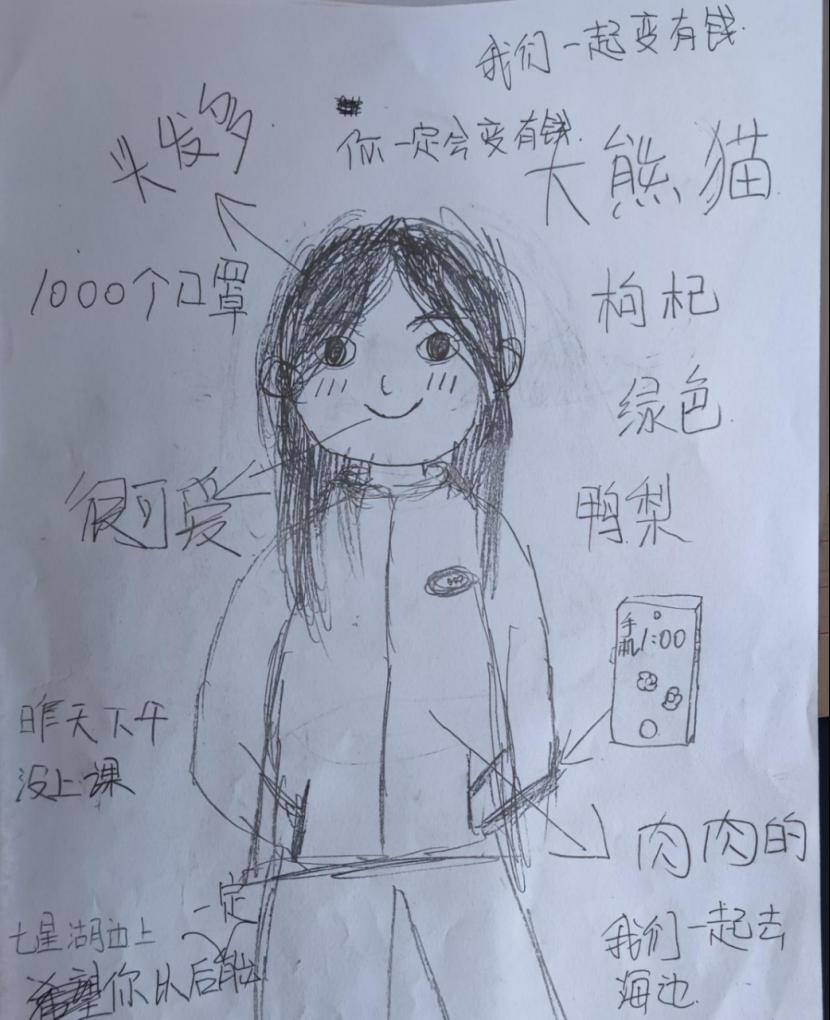 我们一起变有钱.
头发多
你一定会变有钱.
大熊猫
1000个口罩
枸杞
绿色
很可爱
鸭梨
手机 1:00
昨天下午
没上课
肉肉的
一定
七星湖边上
你以后能
我们一起去
海边